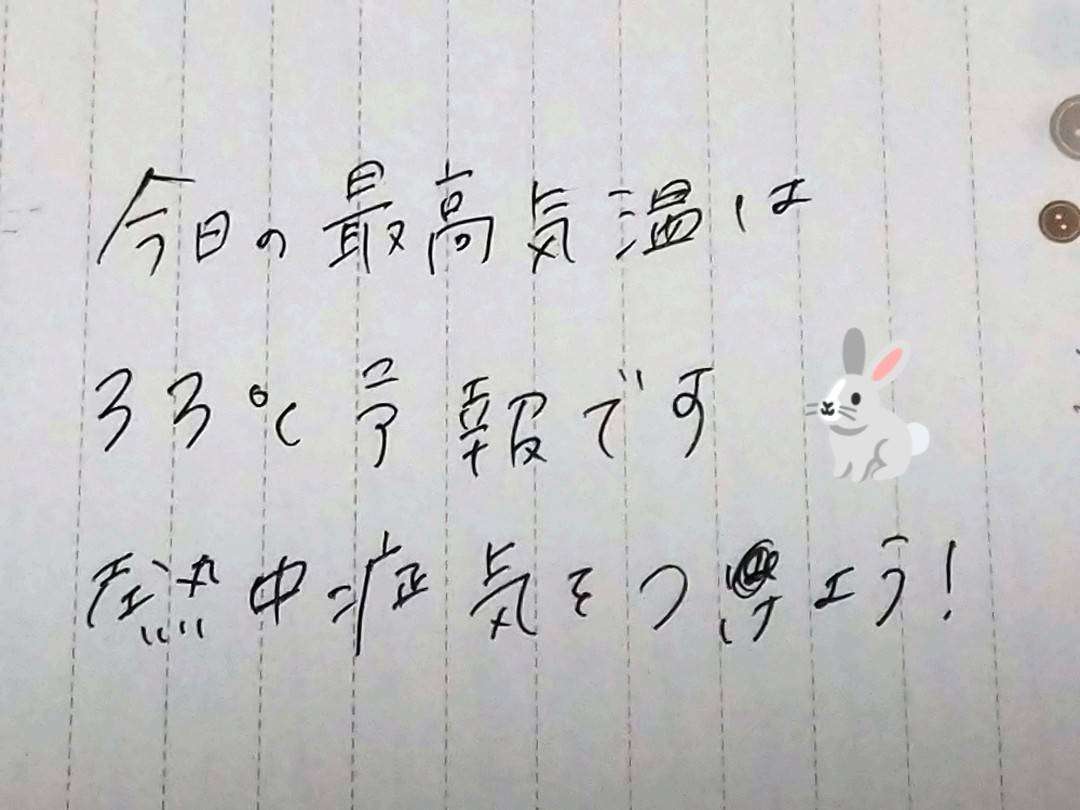 今日の最高気温は
33℃予報です
熱中症気をつけよう!